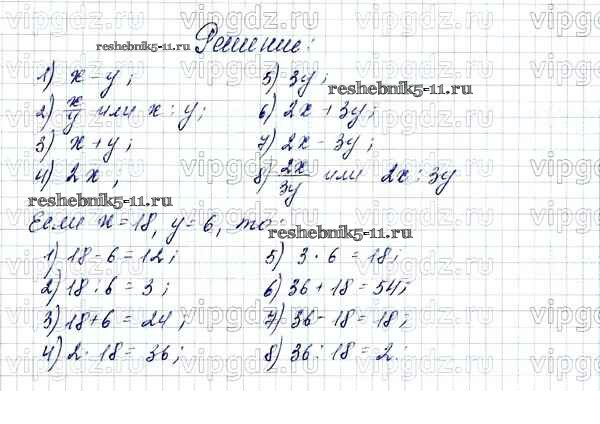 Решение:
1) x - y;
2) x/y или x : y;
3) x + y;
4) 2x;
5) 3y;
6) 2x + 3y;
7) 2x - 3y;
8) 2x/3y или 2x : 3y
Если x = 18, y = 6, то:
1) 18 - 6 = 12;
2) 18 : 6 = 3;
3) 18 + 6 = 24;
4) 2 · 18 = 36;
5) 3 · 6 = 18;
6) 36 + 18 = 54;
7) 36 - 18 = 18;
8) 36 : 18 = 2.
reshebnik5-11.ru
reshebnik5-11.ru
reshebnik5-11.ru
reshebnik5-11.ru
reshebnik5-11.ru
vipgdz.ru